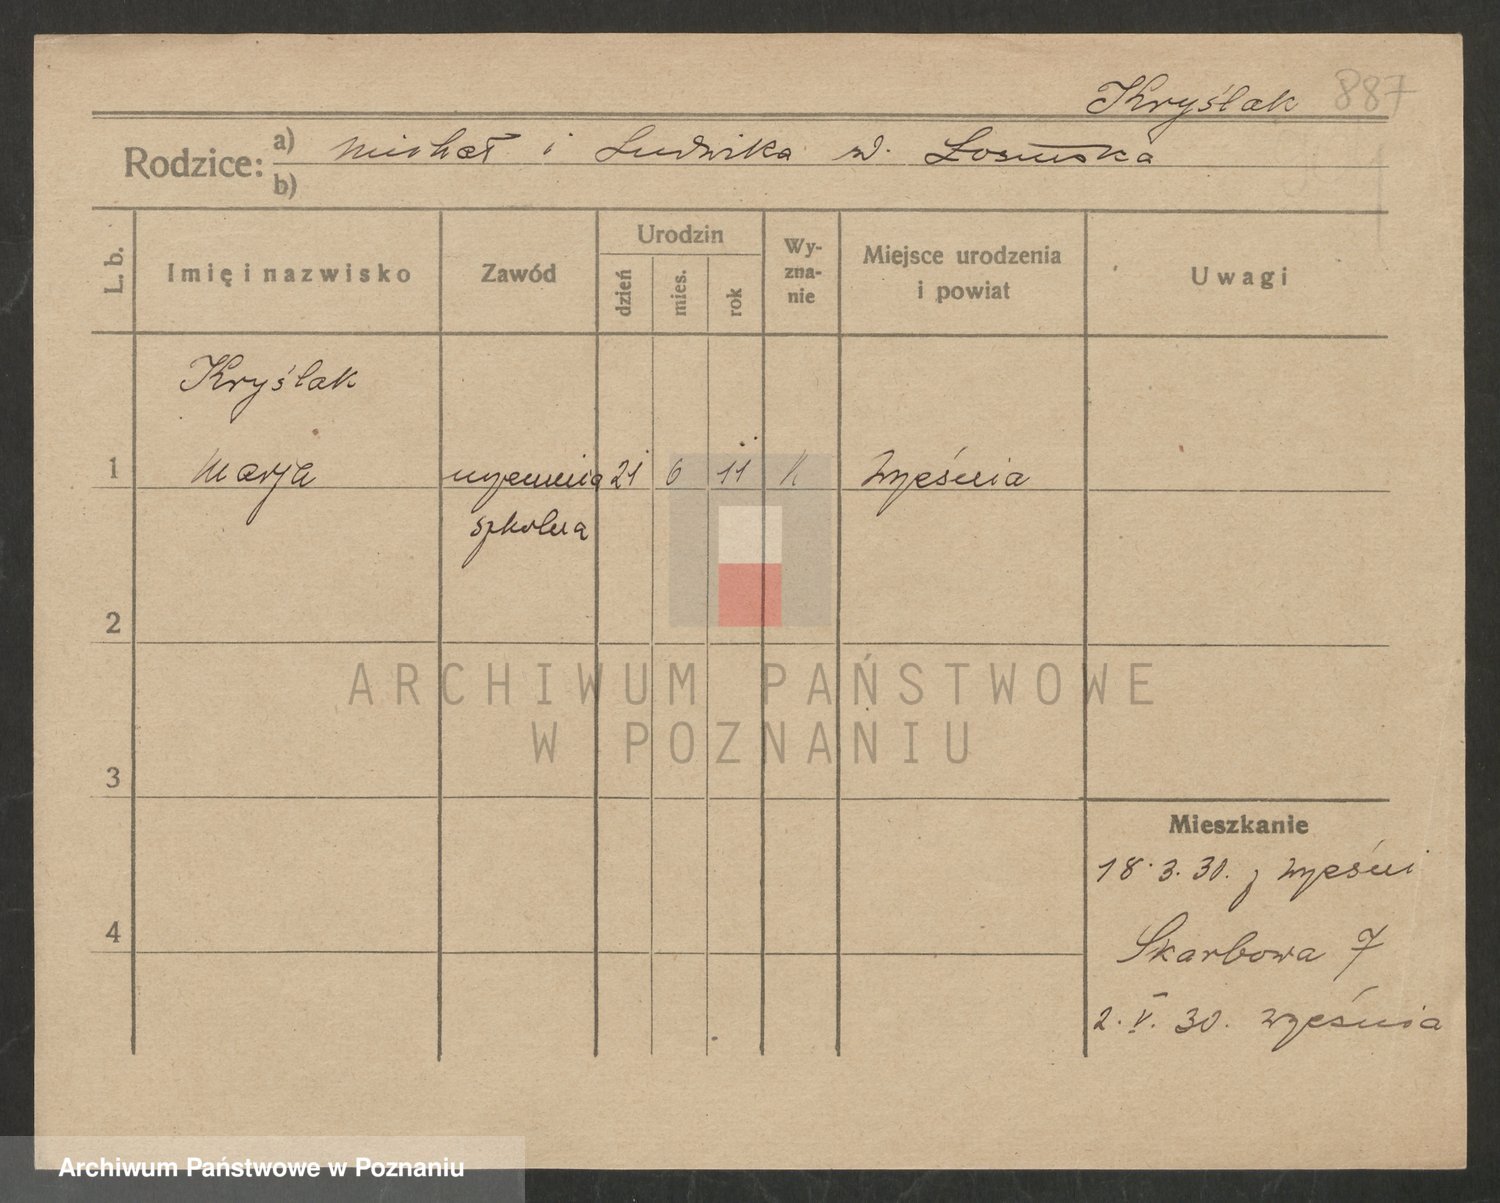 Kryślak 887
Rodzice: a) Michał i Ludwika
b)
L. b.
Imię i nazwisko
Zawód
Urodzin
dzień
mies.
rok
Wy-
zna-
nie
Miejsce urodzenia
i powiat
Uwagi
Kryślak
1 Marja uczennica 21 6 11 k Września
szkolna
2
3
Mieszkanie
18.3.30. z Wrześni
4
Skarbowa 7
2.V.30. Września
ARCHIWUM PAŃSTWOWE
W POZNANIU
Archiwum Państwowe w Poznaniu